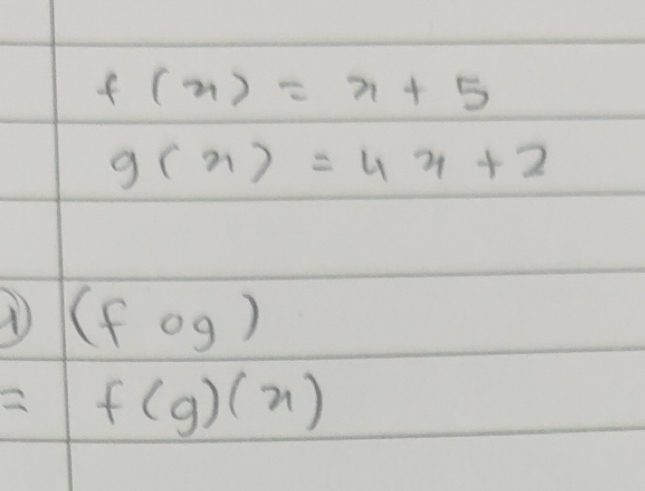 f(x) = x + 5
g(x) = 4x + 2
① (f o g)
= f(g)(x)